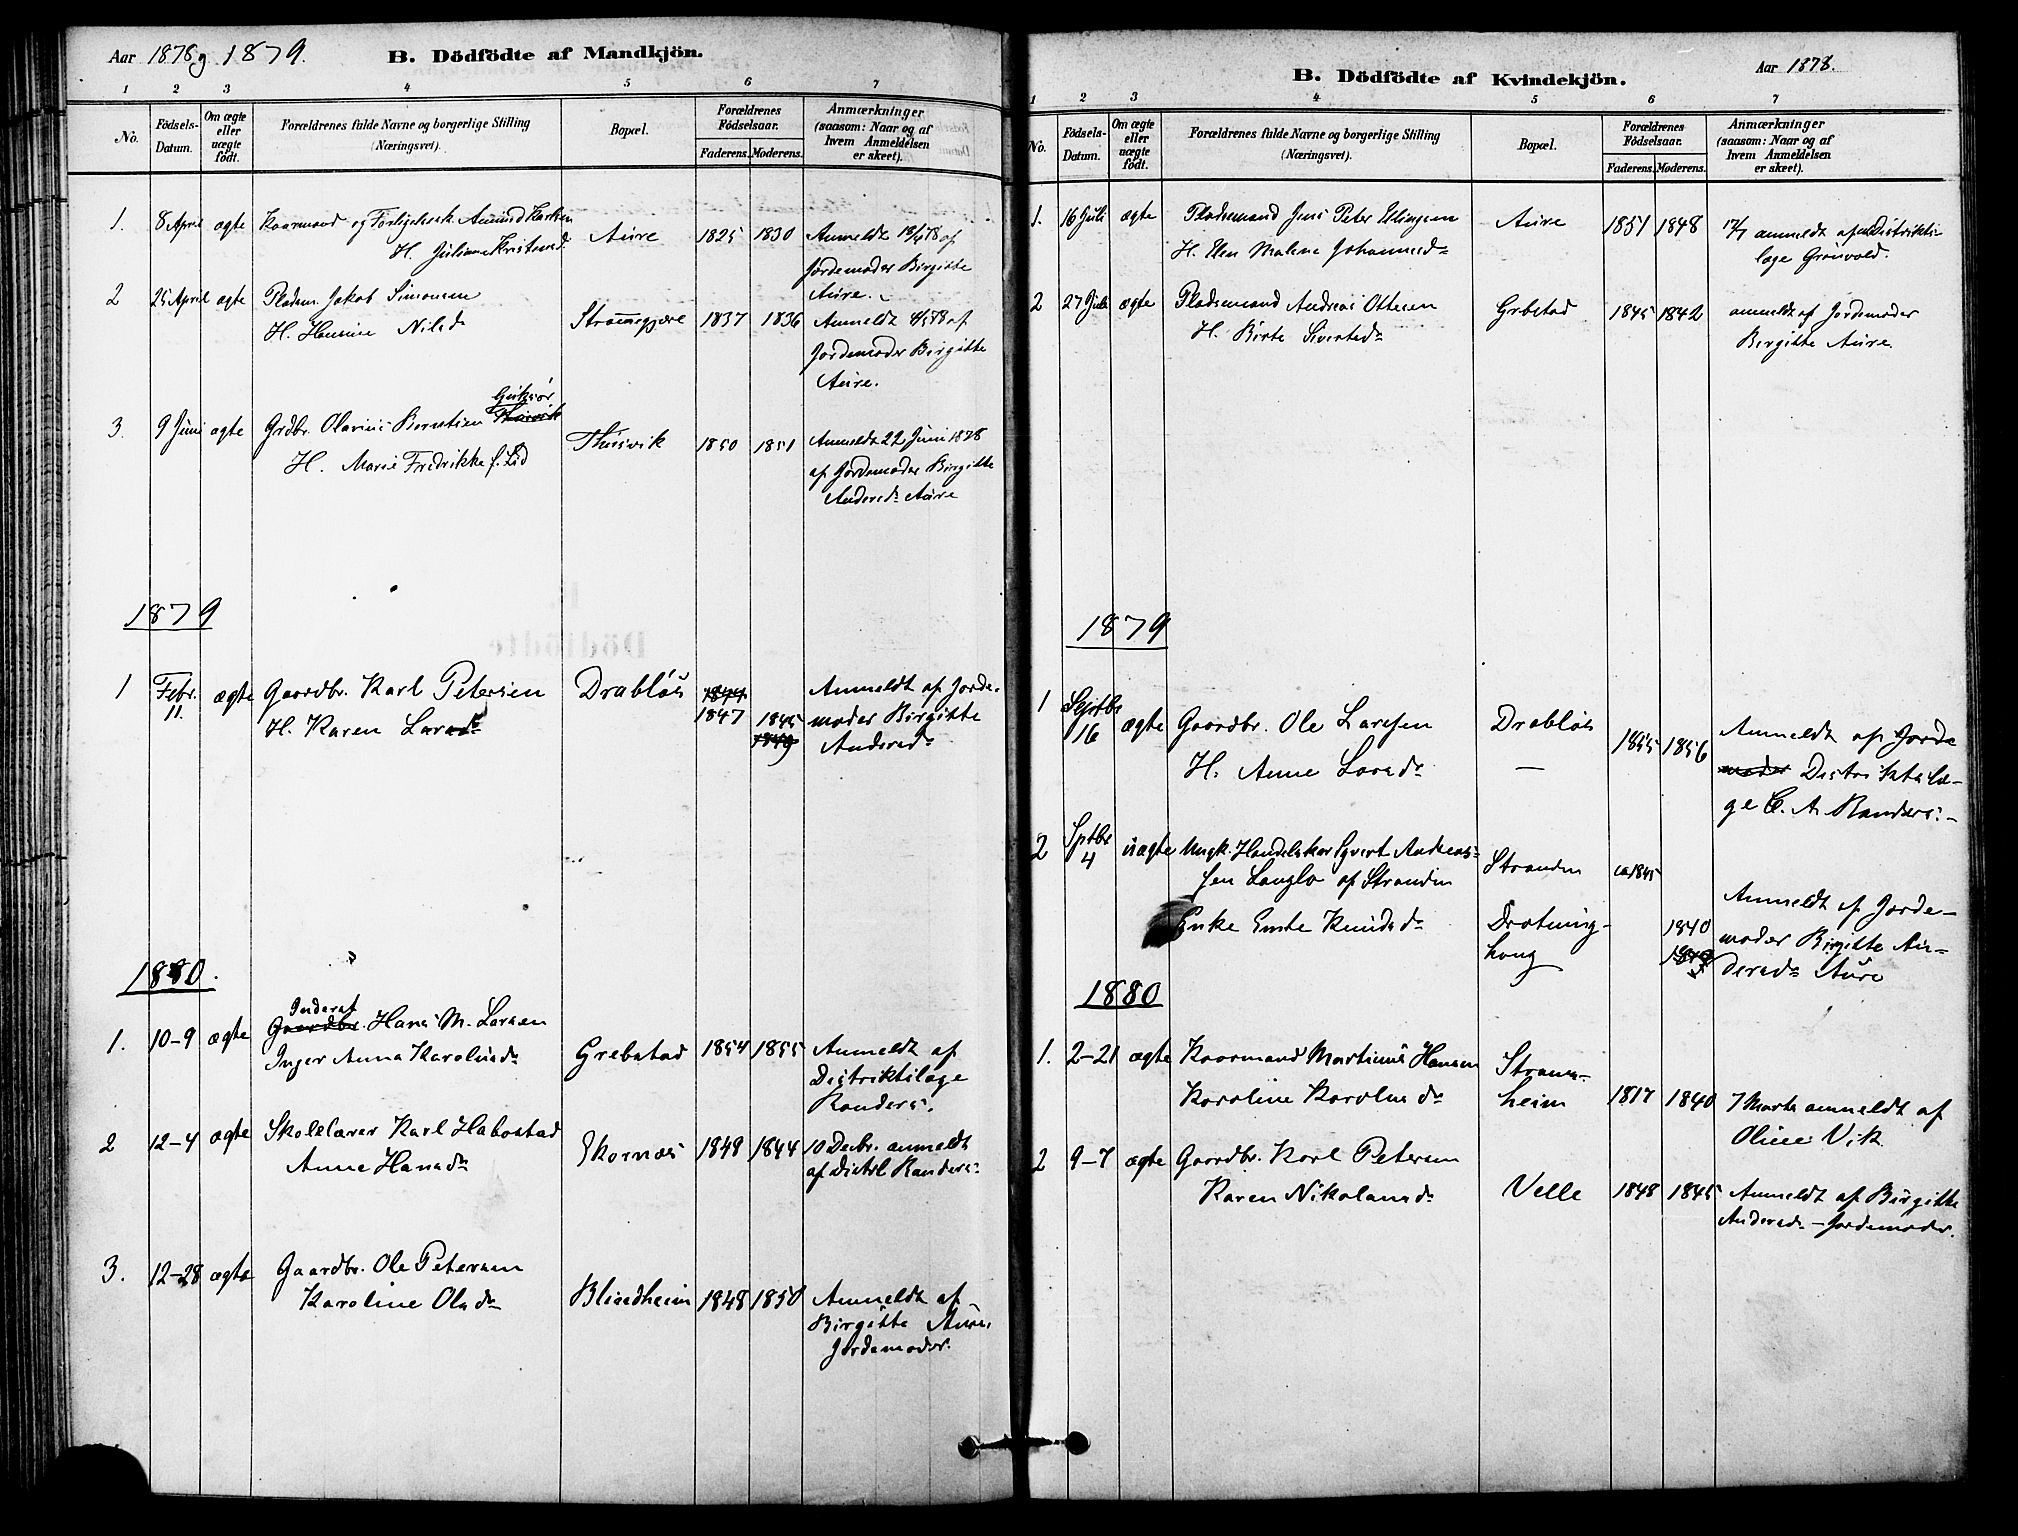 Aar 1878 og 1879.
B. Dödfödte af Mandkjön.
1 2 3 4 5 6 7
No.
Födsels-Datum.
Om ægte eller uægte födt.
Forældrenes fulde Navne og borgerlige Stilling (Næringsvei).
Bopæl.
Forældrenes Födselsaar.
Faderens. Moderens.
Anmærkninger (saasom: Naar og af hvem Anmeldelsen er skeet).
1. 8 April ægte Kaarmand og Amund Karlsen Aure 1825 1830 Anmeldt 18/4 78 af
H. Juliane
Jordemoder Birgitte
Aure.
2 25 April ægte Pladsm. Jakob Simonsen
H. Nilsd 1837 1836 Anmeldt 4/5 78 af
Jordemoder Birgitte
Aure.
3. 9 Juni ægte Grdbr. Olavius Berntsen Thusvik 1850 1851 Anmeldt 22 Juni 1878
H. Marie Fredrikke f. Lid
af Jordemoder Birgitte
Andersd Aure
1879
1 Febr. 11. ægte Gaardbr. Karl Petersen Drabløs 1844 Anmeldt af Jorde-
H. Karen Larsd 1847 1845 moder Birgitte
1849 Andersd
1880.
Inderst
1. 10-9 ægte Gaardbr. Hans M. Larsen
Inger Anna Karolusd Grebstad 1854 1855 Anmeldt af
Distriktslæge
Randers.
2 12-4 ægte Skolelærer Karl Habostad
Anne Hansd Skornæs 1848 1844 10 Decbr. anmeldt
af Distrl Randers
3. 12-28 ægte Gaardbr. Ole Petersen
Karoline Olsd Blindheim 1848 1850 Anmeldt af
Birgitte Aure,
Jordemoder.
B. Dödfödte af Kvindekjön.
Aar 1878.
1 2 3 4 5 6 7
No.
Födsels-Datum.
Om ægte eller uægte födt.
Forældrenes fulde Navne og borgerlige Stilling (Næringsvei).
Bopæl.
Forældrenes Födselsaar.
Faderens. Moderens.
Anmærkninger (saasom: Naar og af hvem Anmeldelsen er skeet).
1. 16 Juli ægte Pladsemand Jens Peter Ellingsen Aure 1851 1848 17/7 anmeldt af Distrikts-
H. Elen Malene Johannesd læge Grønvold.
2 27 Juli ægte Pladsemand Andreas Ottesen Grbstad 1845 1842 anmeldt af Jordemoder
H. Birte Sivertsd Birgitte Aure
1879
1 Septbr 16 ægte Gaardbr. Ole Larssen Drabløs 1855 1856 Anmeldt af Jorde
H. Anne Larsd — moder Distriktslæ-
ge C. A. Randers.
2 Sptbr 4 uægte Ungk. Handelskar Syvert Andreas-
sen Langlo af Stranden Stranden ca 1845
Enke Knudsd Drotning-
houg 1840 Anmeldt af Jorde-
moder Birgitte An-
dersd Aure
1880
1. 2-21 ægte Kaarmand Martinus Hansen Straum-
Karoline Karolusd heim 1817 1840 7 Marts anmeldt af
Oline Vik
2 9-7 ægte Gaardbr. Karl Petersen
Karen Nikolausd Velle 1848 1845 Anmeldt af Birgitte
Andersd - Jordemoder.